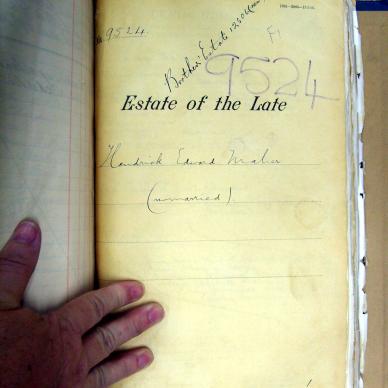 No. 9524.
Brother's Estate 12506/
F1
9524
Estate of the Late
Hendrick Edward Maher
(unmarried)